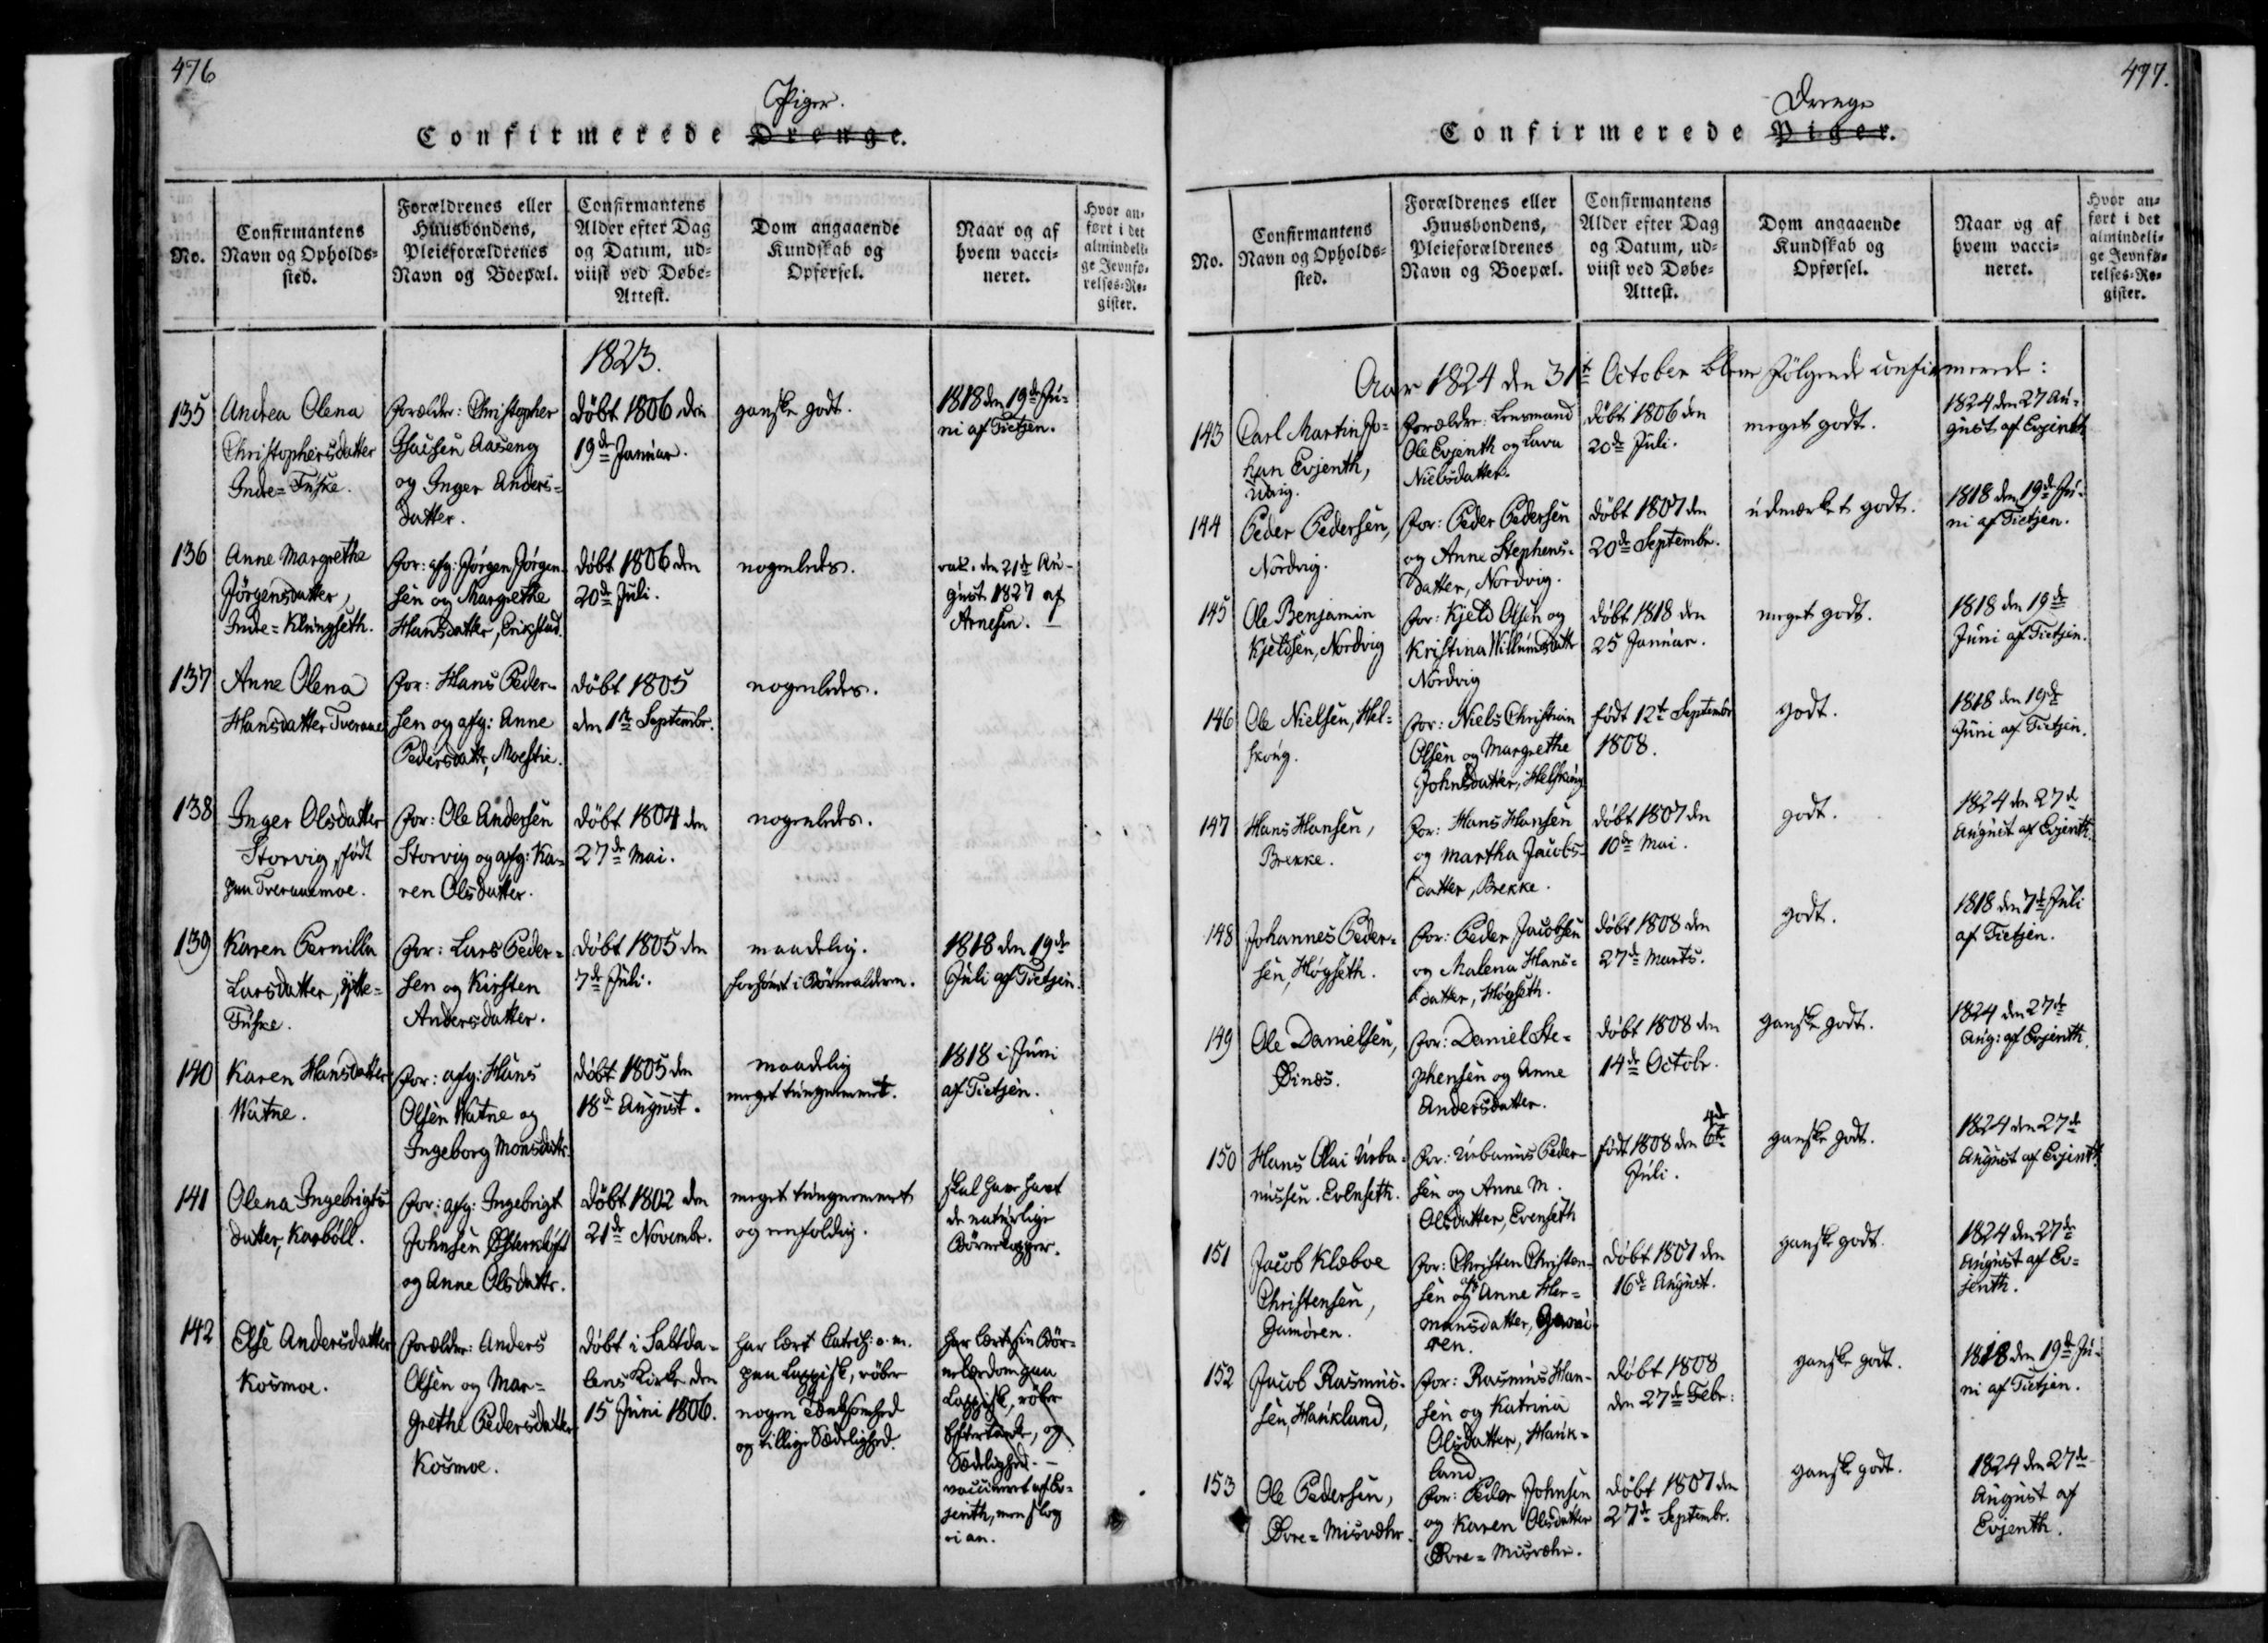 476
Piger.
Confirmerede Drenge.
No.
Confirmantens
Navn og Opholds-
sted.
Forældrenes eller
Huusbondens,
Pleieforældrenes
Navn og Boepæl.
Confirmantens
Alder efter Dag
og Datum, ud-
viist ved Døbe-
Attest.
Dom angaaende
Kundskab og
Opførsel.
Naar og af
hvem vacci-
neret.
Hvor an-
ført i det
almindeli-
ge Jevnfø-
relses-Re-
gister.
1823.
135
Andrea Olena
Christophersdatter
Indre=Fuske.
Forældre: Christopher
Aaseng
og Inger Anders-
datter.
døbt 1806 den
19de Januar.
ganske godt.
1818 den 19de Ju-
ni af Tietjen.
136
Anne Margrethe
Jörgensdatter,
Indre=Klungseth.
For: afg: Jørgen Jørgen-
sen og Margrethe
Hansdatter, Erikstad.
døbt 1806 den
20de Juli.
nogenledes.
vac. den 21de Au-
gust 1827 af
Arnesen. —
137
Anne Olena
Hansdatter Tveraae
For: Hans Peder-
sen og afg: Anne
Pedersdatt, Moestie.
døbt 1805
den 1te Septembr.
nogenledes.
138
Inger Olsdatter
Storvig, født
paa Tveraaemoe.
For: Ole Andersen
Storvig og afg: Ka-
ren Olsdatter.
døbt 1804 den
27de Mai.
nogenledes.
139
Karen Pernilla
Larsdatter, Ytte-
Fuske.
For: Lars Peder-
sen og Kirsten
Andersdatter.
døbt 1805 den
7de Juli.
maadelig.
forsömt i Börnealderen.
1818 den 19de
Juli af Tietjen.
140
Karen Hansdatter
Watne.
For: afg: Hans
Olsen Watne og
Ingeborg Monsdattr.
døbt 1805 den
18de August.
maadelig
meget tungnemmet.
1818 i Juni
af Tietjen.
141
Olena Ingebrigts-
datter, Karböll.
For: afg: Ingebrigt
Johnsen Østerkløft
og Anne Olsdattr.
døbt 1802 den
21de Novembr.
meget tungnemmet
og enfoldig.
skal have havt
de naturlige
Börnekopper.
142
Else Andersdatter
Kosmoe.
Forældre: Anders
Olsen og Mar=
grethe Pedersdatter
Kosmoe.
døbt i Saltda-
lens Kirke den
15 Juni 1806.
har lært Catech: o. m.
paa Lappisk, röber
nogen Tænksomhed
og tillige Sædelighed.
har lært sin Bör-
nelærdom paa
Lappisk, röber
Eftertanke, og
Sædelighed. —
vaccineret af Ev-
jenth, men slog
ei an.
477.
Drenge
Confirmerede Piger.
No.
Confirmantens
Navn og Opholds-
sted.
Forældrenes eller
Huusbondens,
Pleieforældrenes
Navn og Boepæl.
Confirmantens
Alder efter Dag
og Datum, ud-
viist ved Døbe-
Attest.
Dom angaaende
Kundskab og
Opførsel.
Naar og af
hvem vacci-
neret.
Hvor an-
ført i det
almindeli-
ge Jevnfø-
relses-Re-
gister.
Aar 1824 den 31te October bleve følgende confirmerede:
143
Carl Martin Jo-
han Evjenth,
Udvig.
Forældre: Lensmand
Ole Evjenth og Lava
Nielsdatter.
døbt 1806 den
20de Juli.
meget godt.
1824 den 27 Au-
gust af Evjenth
144
Peder Pedersen,
Nordvig.
For: Peder Pedersen
og Anne Stephens-
datter, Nordvig.
døbt 1807 den
20de Septembr.
udmærket godt.
1818 den 19de Ju-
ni af Tietjen.
145
Ole Benjamin
Kjeldsen, Nordvig
For: Kjeld Olsen og
Kristina Willumsdattr
Nordvig
døbt 1818 den
25 Januar.
meget godt.
1818 den 19de
Juni af Tietjen.
146
Ole Nielsen, Hel-
skoug.
For: Niels Christian
Olsen og Margrethe
Johnsdatter, Helskoug
født 12te Septembr
1808.
godt.
1818 den 19de
Juni af Tietjen.
147
Hans Hansen,
Brekke.
For: Hans Hansen
og Martha Jacobs-
datter, Brekke.
døbt 1807 den
10de Mai.
godt.
1824 den 27de
August af Evjenth.
148
Johannes Peder-
sen, Høgseth.
For: Peder Jacobsen
og Malena Hans-
datter, Høgseth.
døbt 1808 den
27de Marts.
godt.
1818 den 7de Juli
af Tietjen.
149
Ole Danielsen,
Øinæs.
For: Daniel Ste-
phensen og Anne
Andersdatter.
døbt 1808 den
14de Octobr.
ganske godt.
1824 den 27de
Aug: af Evjenth.
150
Hans Olai Urba-
nussen. Evenseth.
For: Urbanus Peder-
sen og Anne M.
Olsdatter, Evenseth
4de
født 1808 den 6te
Juli.
ganske godt.
1824 den 27de
August af Evjenth.
151
Jacob Klæboe
Christensen,
Gamören.
For: Christen Christen-
sen og afg Anne Her-
mansdatter, Gamö-
ren.
døbt 1807 den
16de August.
ganske godt.
1824 den 27de
August af Ev-
jenth.
152
Jacob Rasmus-
sen, Haukland,
For: Rasmus Han-
sen og Katrina
Olsdatter, Hauk-
land
døbt 1808
den 27de Febr:
ganske godt.
1818 den 19de Ju-
ni af Tietjen.
153
Ole Pedersen,
Øvre=Misvæhr.
For: Peder Johnsen
og Karen Olsdatter
Øvre=Misvæhr.
døbt 1807 den
27de Septembr.
ganske godt.
1824 den 27de
August af
Evjenth.